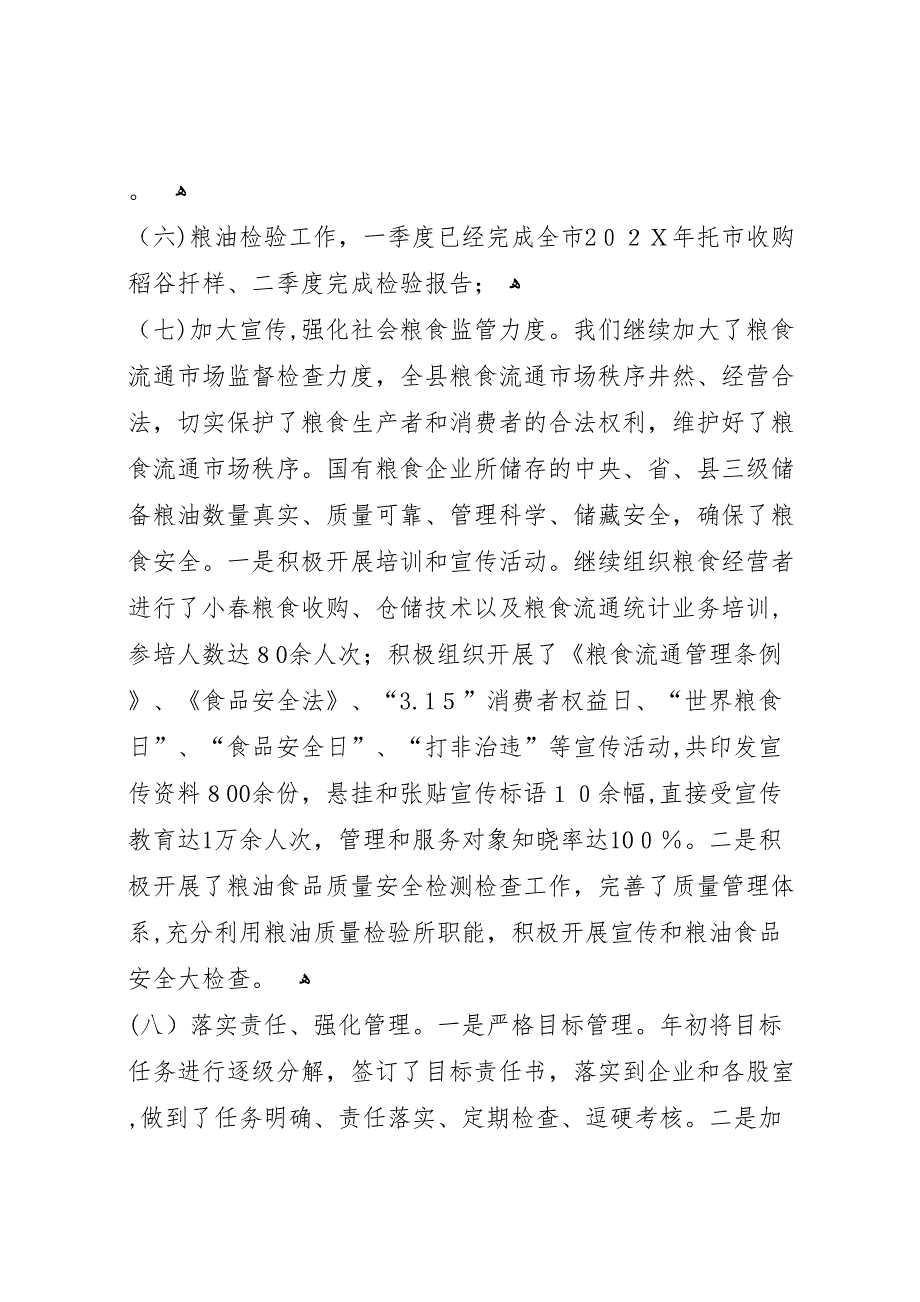 。 ﻫ
（六)粮油检验工作，一季度已经完成全市2０２Ｘ年托市收购
稻谷扦样、二季度完成检验报告； ﻫ
（七)加大宣传,强化社会粮食监管力度。我们继续加大了粮食
流通市场监督检查力度，全县粮食流通市场秩序井然、经营合
法，切实保护了粮食生产者和消费者的合法权利，维护好了粮
食流通市场秩序。国有粮食企业所储存的中央、省、县三级储
备粮油数量真实、质量可靠、管理科学、储藏安全，确保了粮
食安全。一是积极开展培训和宣传活动。继续组织粮食经营者
进行了小春粮食收购、仓储技术以及粮食流通统计业务培训,
参培人数达８0余人次；积极组织开展了《粮食流通管理条例
》、《食品安全法》、“3.1５”消费者权益日、“世界粮食
日”、“食品安全日”、“打非治违”等宣传活动,共印发宣
传资料８00余份，悬挂和张贴宣传标语１０余幅,直接受宣传
教育达1万余人次，管理和服务对象知晓率达10０％。二是积
极开展了粮油食品质量安全检测检查工作，完善了质量管理体
系,充分利用粮油质量检验所职能，积极开展宣传和粮油食品
安全大检查。 ﻫ
(八）落实责任、强化管理。一是严格目标管理。年初将目标
任务进行逐级分解，签订了目标责任书，落实到企业和各股室
,做到了任务明确、责任落实、定期检查、逗硬考核。二是加